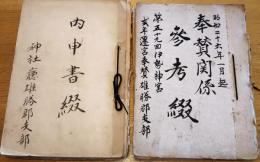 昭和二十六年一月起
奉賛関係
参考綴
第五十九回伊勢神宮
式年遷宮奉賛雄勝郡支部
内申書綴
神社庁雄勝郡支部